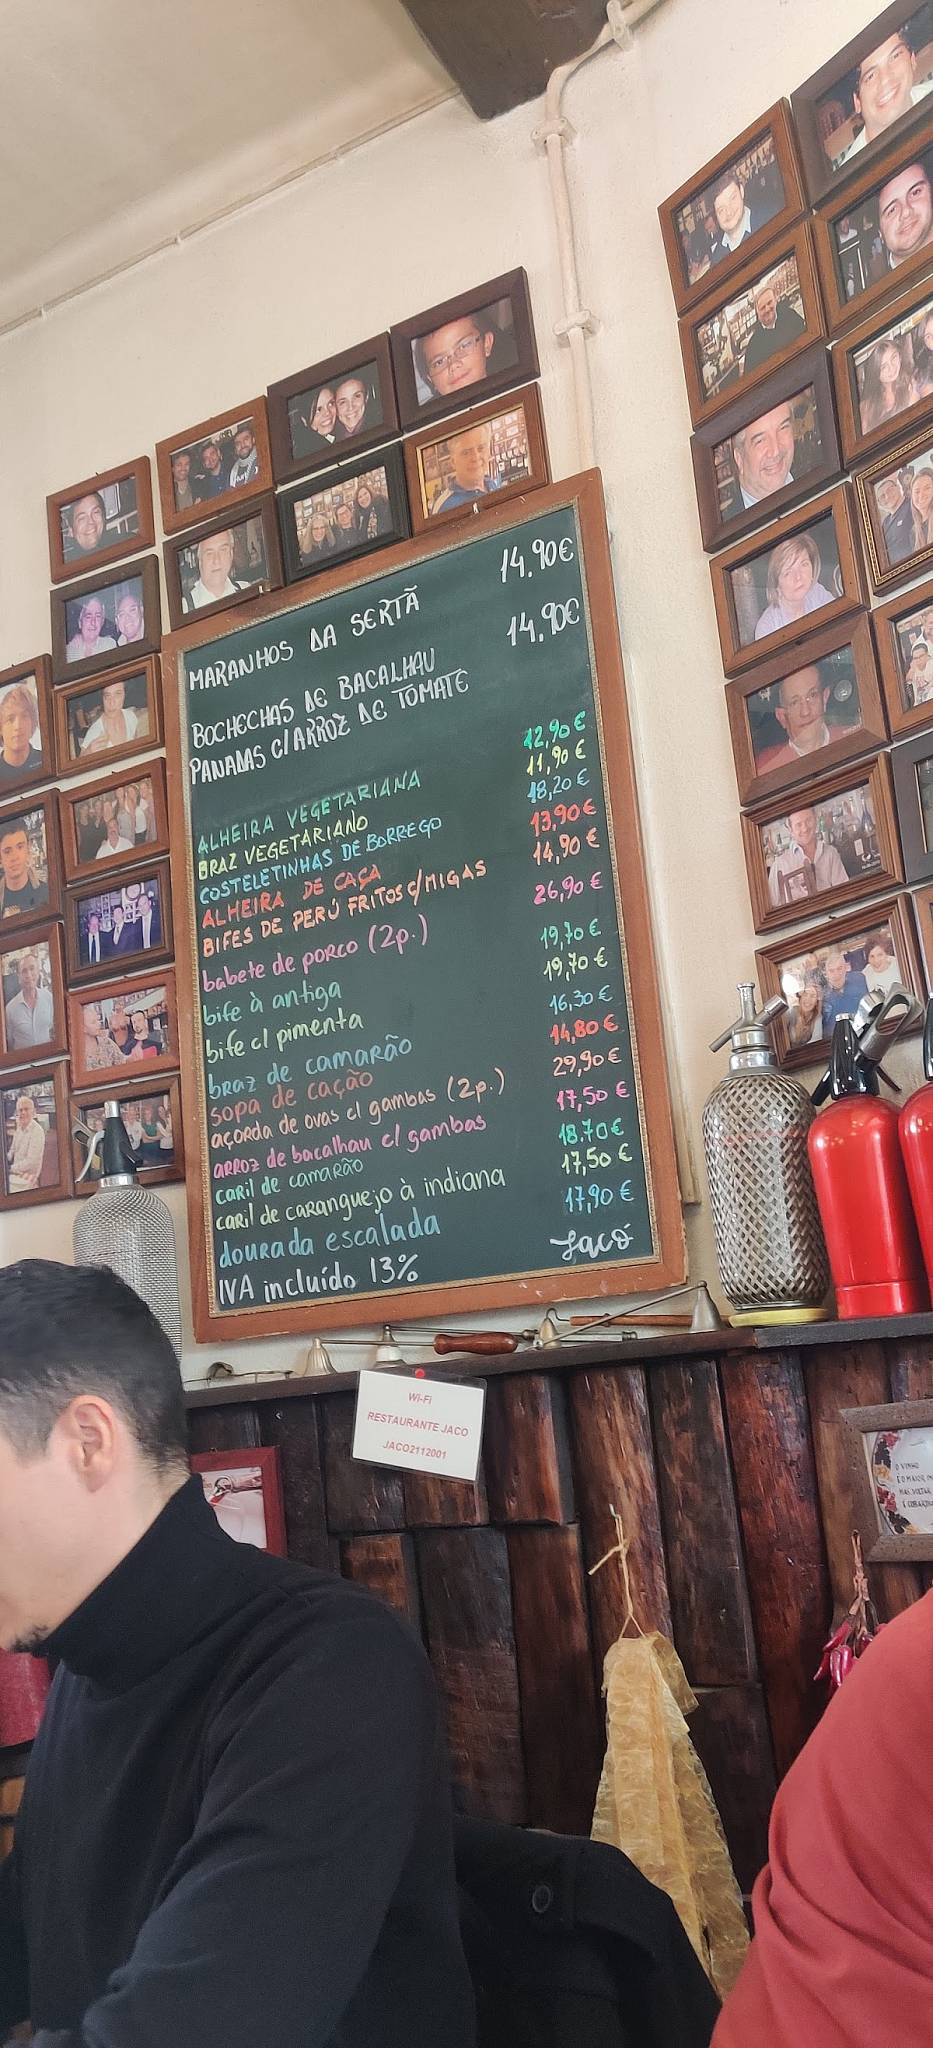 MARANHOS DA SERTÃ 14.90€
BOCHECHAS DE BACALHAU 14.90€
PANADAS C/ARROZ DE TOMATE
ALHEIRA VEGETARIANA 12,90€
BRAZ VEGETARIANO 11,90€
COSTELETINHAS DE BORREGO 18,20€
ALHEIRA DE CAÇA 13,90€
BIFES DE PERÚ FRITOS C/MIGAS 14,90€
babete de porco (2p.) 26,90€
bife à antiga 19,70€
bife c/ pimenta 19,70€
braz de camarão 16,30€
sopa de cação 14,80€
açorda de ovas c/ gambas (2p.) 29,90€
arroz de bacalhau c/ gambas 17,50€
caril de camarão 18.70€
caril de caranguejo à indiana 17,50€
dourada escalada 17,90€
IVA incluído 13% Jacó
Wi-Fi
RESTAURANTE JACO
JACO2112001
O VINHO
É O MAIOR
MAS, VOLTAR
É COBARDIA